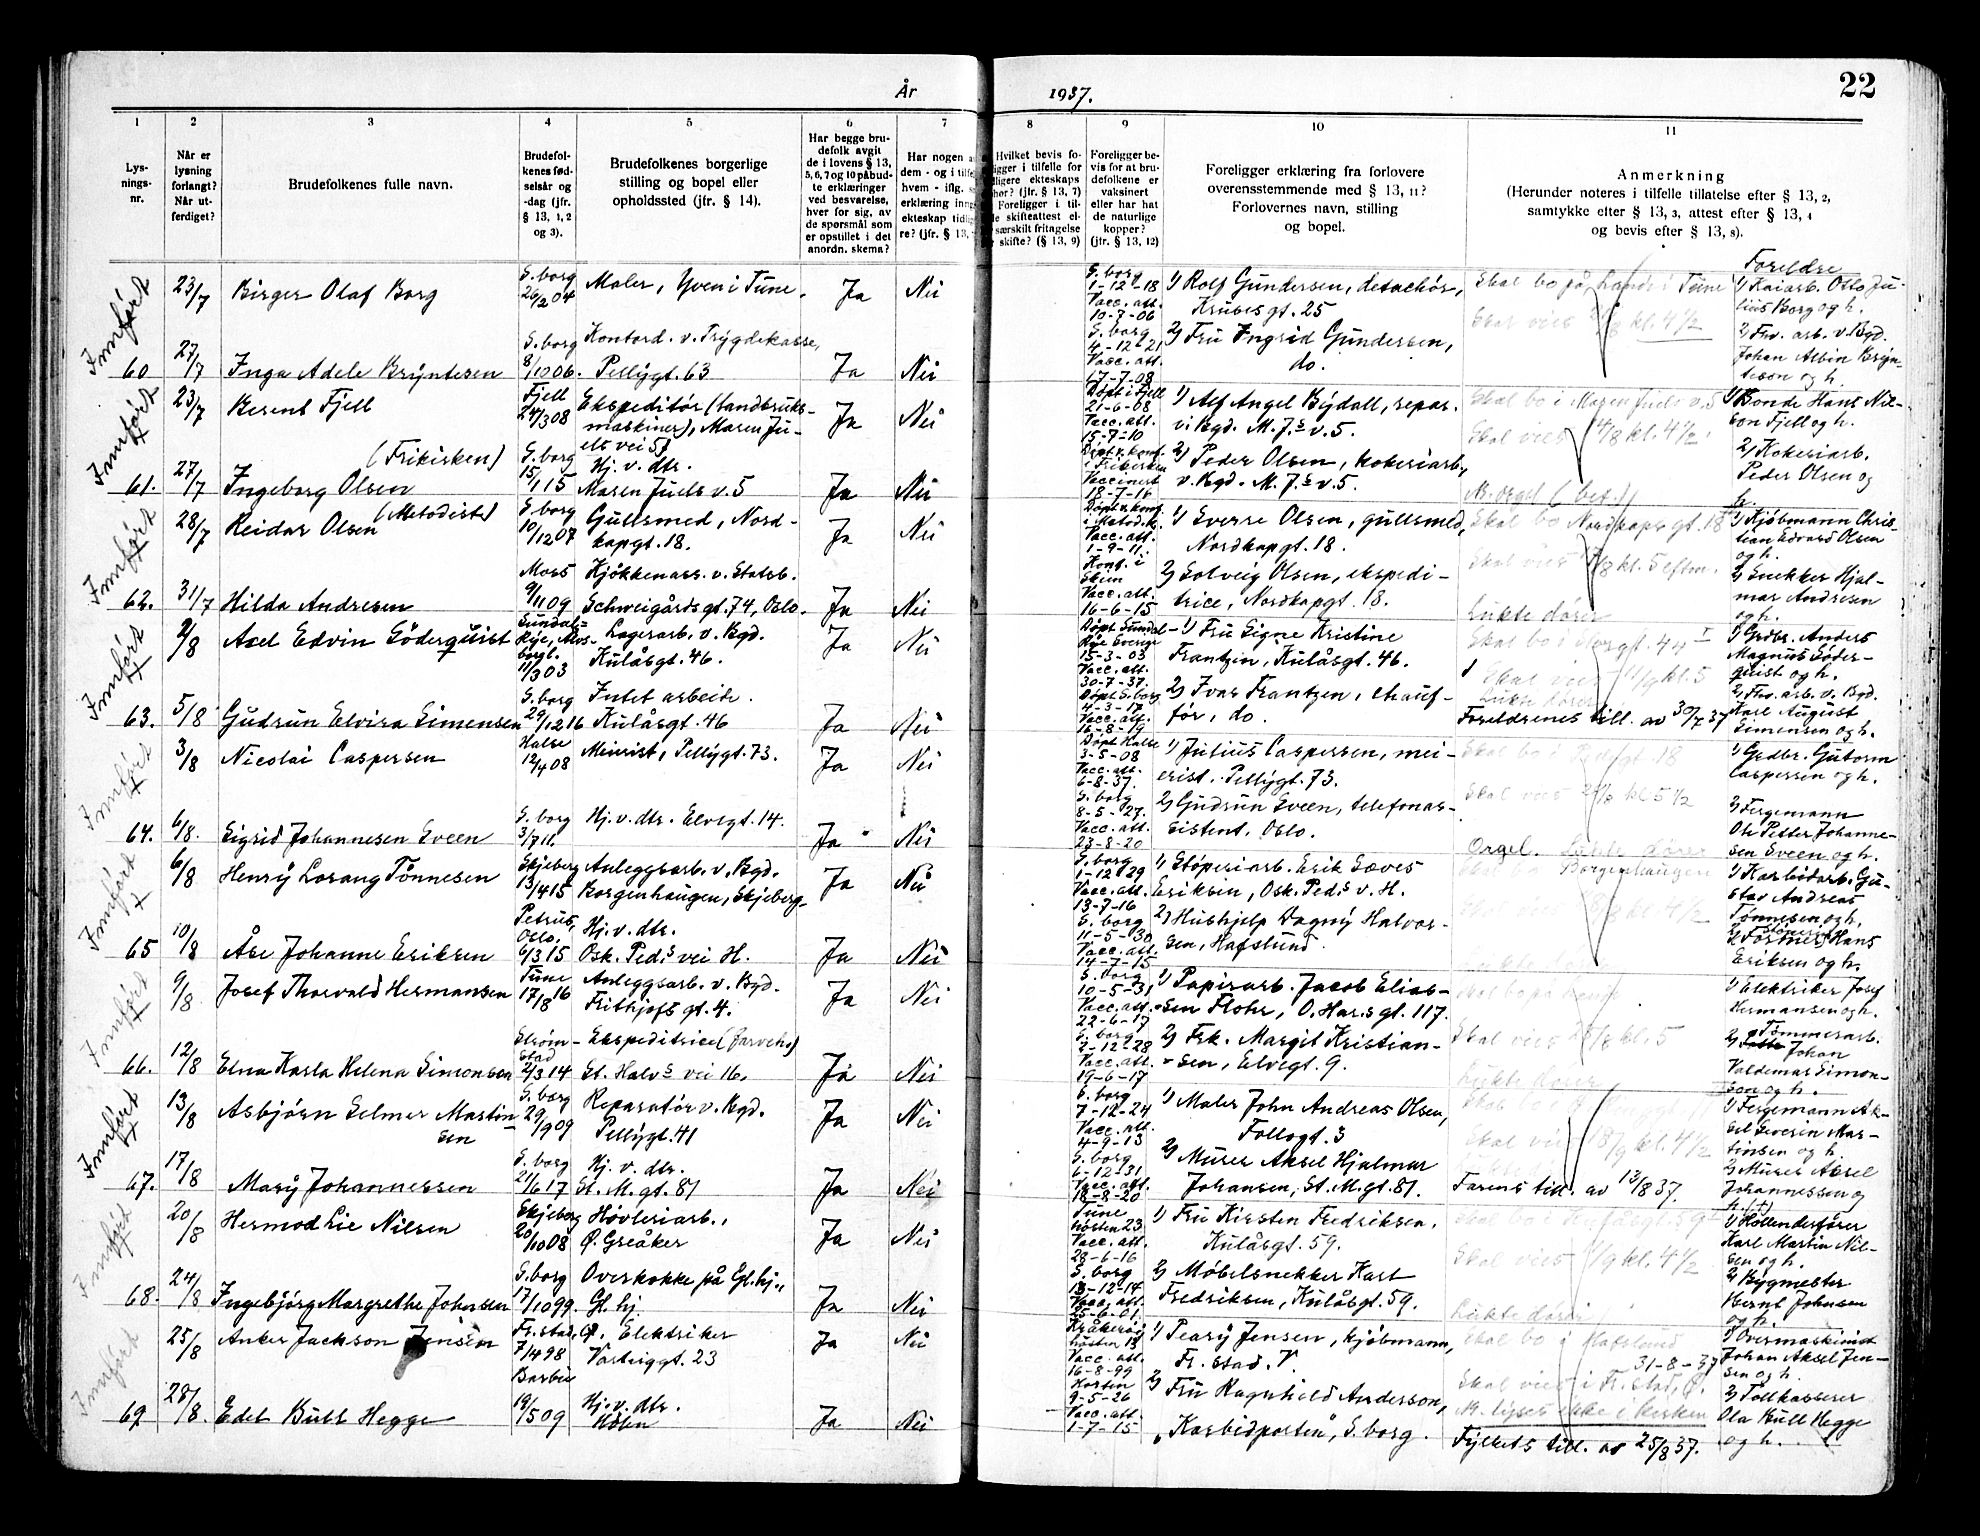 År
1937.
22
1
2
3
4
5
6
7
8
9
10
11
Lys-
nings-
nr.
Når er
lysning
forlangt?
Når ut-
ferdiget?
Brudefolkenes fulle navn.
Brudefol-
kenes fød-
selsår og
-dag (jfr.
§ 13, 1, 2
og 3).
Brudefolkenes borgerlige
stilling og bopel eller
opholdssted (jfr. § 14).
Har begge bru-
defolk avgit
de i lovens § 13,
5, 6, 7 og 10 påbud-
te erklæringer
ved besvarelse,
hver for sig, av
de spørsmål som
er opstillet i det
anordn. skema?
Har nogen a
dem - og i tilfe
hvem - iflg. s
erklæring inng
ekteskap tidl
re? (jfr. § 13,
Hvilket bevis fo-
ligger i tilfelle for
dligere ekteskaps
hør? (jfr. § 13, 7)
Foreligger i til-
le skifteattest el-
særskilt fritagelse
skifte? (§ 13, 9)
Foreligger be-
vis for at bru-
defolkene er
vaksinert
eller har hat
de naturlige
kopper?
(jfr. § 13, 12)
Foreligger erklæring fra forlovere
overensstemmende med § 13, 11?
Forlovernes navn, stilling
og bopel.
Anmerkning
(Herunder noteres i tilfelle tillatelse efter § 13, 2,
samtykke efter § 13, 3, attest efter § 13, 4
og bevis efter § 13, 8).
Foreldre
Innført
23/7 Birger Olaf Borg S.borg 26/2 04 Maler, Yven i Tune. Ja Nei
S.borg
1-12-18
Vacc. att.
10-7-06
1) Rolf Gundersen, detachør,
Krubes gt. 25
Skal bo på Lande i Tune
Skal vies kl. 4½
1) Kaiarb. Otto Ju-
lius Borg og h.
60 27/7 Inga Adele Bryntesen S.borg 8/10 06. Kontord. v. Trygdekasse,
Pellygt. 63 Ja Nei
S.borg
4-12-21
Vacc. att.
17-7-08
2) Fru Ingrid Gundersen,
do.
2) Fhv. arb. v. Bgd.
Johan Albin Bryn-
teson og h.
Innført
23/7 Berent Fjell Fjell 24/3 08 Ekspeditør (landbruks-
maskiner), Maren Ju-
els vei 5) Ja Nei
Døpt i Fjell
21-6-08
Vacc. att.
15-7-10
1) Alf Angel Bydall, repar.
v. Bgd. M. J.s v. 5.
Skal bo i Maren Juels v. 5
Skal vies 14/8 kl. 4½.
1) Bonde Hans Nil-
sen Fjell og h.
(Frikirken)
61. 27/7 Ingeborg Olsen S.borg 15/1 15 Hj. v. dtr.
Maren Juels v. 5 Ja Nei
Døpt v. konf.
i Frikirken
Vaccinert
18-7-16
2) Peder Olsen, kokeriarb.,
v. Bgd. M. J.s v. 5.
M. orgel (bet.)
2) Kokeriarb.
Peder Olsen og
h.
Innført
28/7 Reidar Olsen (Metodist) S.borg 10/12 07 Gullsmed, Nord-
kapgt. 18. Ja Nei
Døpt v. konf.
i Metod. k.
Vacc. att.
1-9-11.
1) Sverre Olsen, gullsmed,
Nordkapgt. 18.
Skal bo Nordkaps gt. 18
Skal vies kl. 5 eftm.
1) Kjøbmann Chris-
tian Edvard Olsen
og h.
62. 31/7 Hilda Andresen Moss 9/11 09 Kjøkkenass. v. Statsb.
Schweigårds gt. 74, Oslo. Ja Nei
Konf. i
Skien
Vacc. att.
16-6-15
2) Solveig Olsen, ekspedi-
trice, Nordkapgt. 18.
Lukte dører
2) Snekker Hjal-
mar Andresen
og h.
Innført
2/8 Axel Edvin Söderquist 11/3 03 Lagerarb. v. Bgd.
Kulåsgt. 46. Ja Nei
15-3-03
Vacc. att.
30-7-37.
1) Fru Signe Kristine
Frantzen, Kulåsgt. 46.
Skal vies kl. 5
1) Grdbr. Anders
Magnus Söder-
quist og h.
63. 5/8 Gudrun Elvira Simensen S.borg 29/12 16 Intet arbeide.
Kulåsgt. 46 Ja Nei
Døpt S.borg
4-3-17
Vacc. att.
16-8-19
2) Ivar Frantzen, chauf-
før, do.
Lukte dører
Foreldrenes till. av 30/7 37
2) Fhv. arb. v. Bgd.
Karl August
Simensen og h.
Innført
3/8 Nicolai Caspersen Halse 12/4 08 Meierist, Pellygt. 73. Ja Nei
Døpt Halse
3-5-08
Vacc. att.
6-8-37.
1) Julius Caspersen, mei-
erist. Pellygt. 73.
Skal vies kl 5½
1) Grdbr. Gutorm
Caspersen og h.
64. 6/8. Sigrid Johannesen Sveen S.borg 3/7 11. Hj. v. dtr. Elvegt. 14. Ja Nei
S.borg
8-5-27.
Vacc. att.
23-8-20
2) Gudrun Sveen, telefonas-
sistent, Oslo.
Orgel. Lukte dører
2) Fergemann
Ole Petter Johanne-
sen Sveen og h.
Innført
6/8 Henry Lorang Tönnesen Skjeberg 13/4 15 Anleggsarb. v. Bgd.
Borgenhaugen, Skjeberg. Ja Nei
S.borg
1-12-29
Vacc. att.
13-7-16
1) Støperiarb. Erik Sæves
Eriksen, Osk. Ped.s v. H.
Borgenhaugen
kl 4½
1) Karbidarb. Gu-
stav Andreas
Tønnesen og h.
65 10/8 Åse Johanne Eriksen Petrus,
Oslo.
6/3 15 Hj. v. dtr.
Osk. Ped.s vei H. Ja Nei
S.borg
11-5-30
Vacc. att.
14-7-15
2) Hushjelp Dagny Halvor-
sen, Hafslund.
2) Hans
Eriksen og h.
Innført
9/8 Josef Thorvald Hermansen Tune 17/8 16 Anleggsarb. v. Bgd.
Frithjofs gt. 4. Ja Nei
S.borg
10-5-31
Vacc. att.
22-6-17
1) Papirarb. Jacob Elias-
sen Flohr, O. Har.s gt. 117.
1) Elektriker Josef
Hermansen og h.
66. 12/8 Elna Karla Helena Simonsen Strøm-
stad
2/3 14 Ekspeditrice (farveh.)
St. Halv.s vei 16. Ja Nei
S.borg
2-12-28
Vacc. att.
19-6-17
2) Frk. Margit Kristian-
sen, Elvegt. 9.
Skal vies kl. 5
Lukte dører
2) Tømmerarb.
Johan
Valdemar Simon-
sen og h.
Innført
13/8 Asbjörn Selmer Martin-
sen S.borg 29/9 09 Reparatør v. Bgd.
Pellygt. 41 Ja Nei
S.borg
7-12-24
Vacc. att.
4-9-13
1) Maler John Andreas Olsen,
Follogt. 3
Skal vies 18/9 kl. 4½
1) Fergemann Ak-
sel Severin Mar-
tinsen og h.
67. 17/8 Mary Johannessen S.borg 21/6 17 Hj. v. dtr.
St. M. gt. 81 Ja Nei
S.borg
6-12-31
Vacc. att.
18-8-20
2) Murer Aksel Hjalmar
Johansen, St. M. gt. 81.
Farens till. av 13/8 37.
2) Murer Aksel
Johannessen og
Innført
20/8 Hermod Lie Nilsen Skjeberg 20/10 08 Høvleriarb.,
Ø. Greåker Ja Nei
Tune
høsten 23
Vacc. att.
28-6-16
1) Fru Kirsten Fredriksen.
Kulåsgt. 59.
Skal vies kl. 4½
1) Hollenderfører
Karl Martin Nil-
sen og h.
68. 24/8 Ingebjörg Margrethe Johnsen S.borg 17/10 99. Overkokke på Gl. hj.,
Gl. hj. Ja Nei
S.borg
13-12-14
Vacc. att.
25-6-01
2) Møbelsnekker Kart
Fredriksen, Kulåsgt. 59.
Lukte dører
2) Bygmester
Bernt Johnsen
og h.
Innført
25/8 Anker Jackson Jensen Fr.stad, Ø.
7/4 98 Elektriker
Varteiggt. 23 Ja Nei
Kråkerøy
høsten 13
Vacc. att.
16-8-99
1) Peary Jensen, kjøbmann,
Fr.stad. V.
Skal bo i Hafslund
31-8-37
Skal vies i Fr.stad, Ø.
1) Overmaskinist
Johan Aksel Jen-
sen og h.
69 28/8. Edel Bull Hegge Barbu
19/5 09 Hj. v. dtr. Ja Nei
Horten
9-5-26
Vacc. att.
1-7-15
2) Fru Ragnhild Anderson,
"Karbidporten", S.borg.
N. lyses ikke i kirken
Fylkets till. av 25/8 37.
2) Tollkasserer
Ola Bull Hegge
og h.